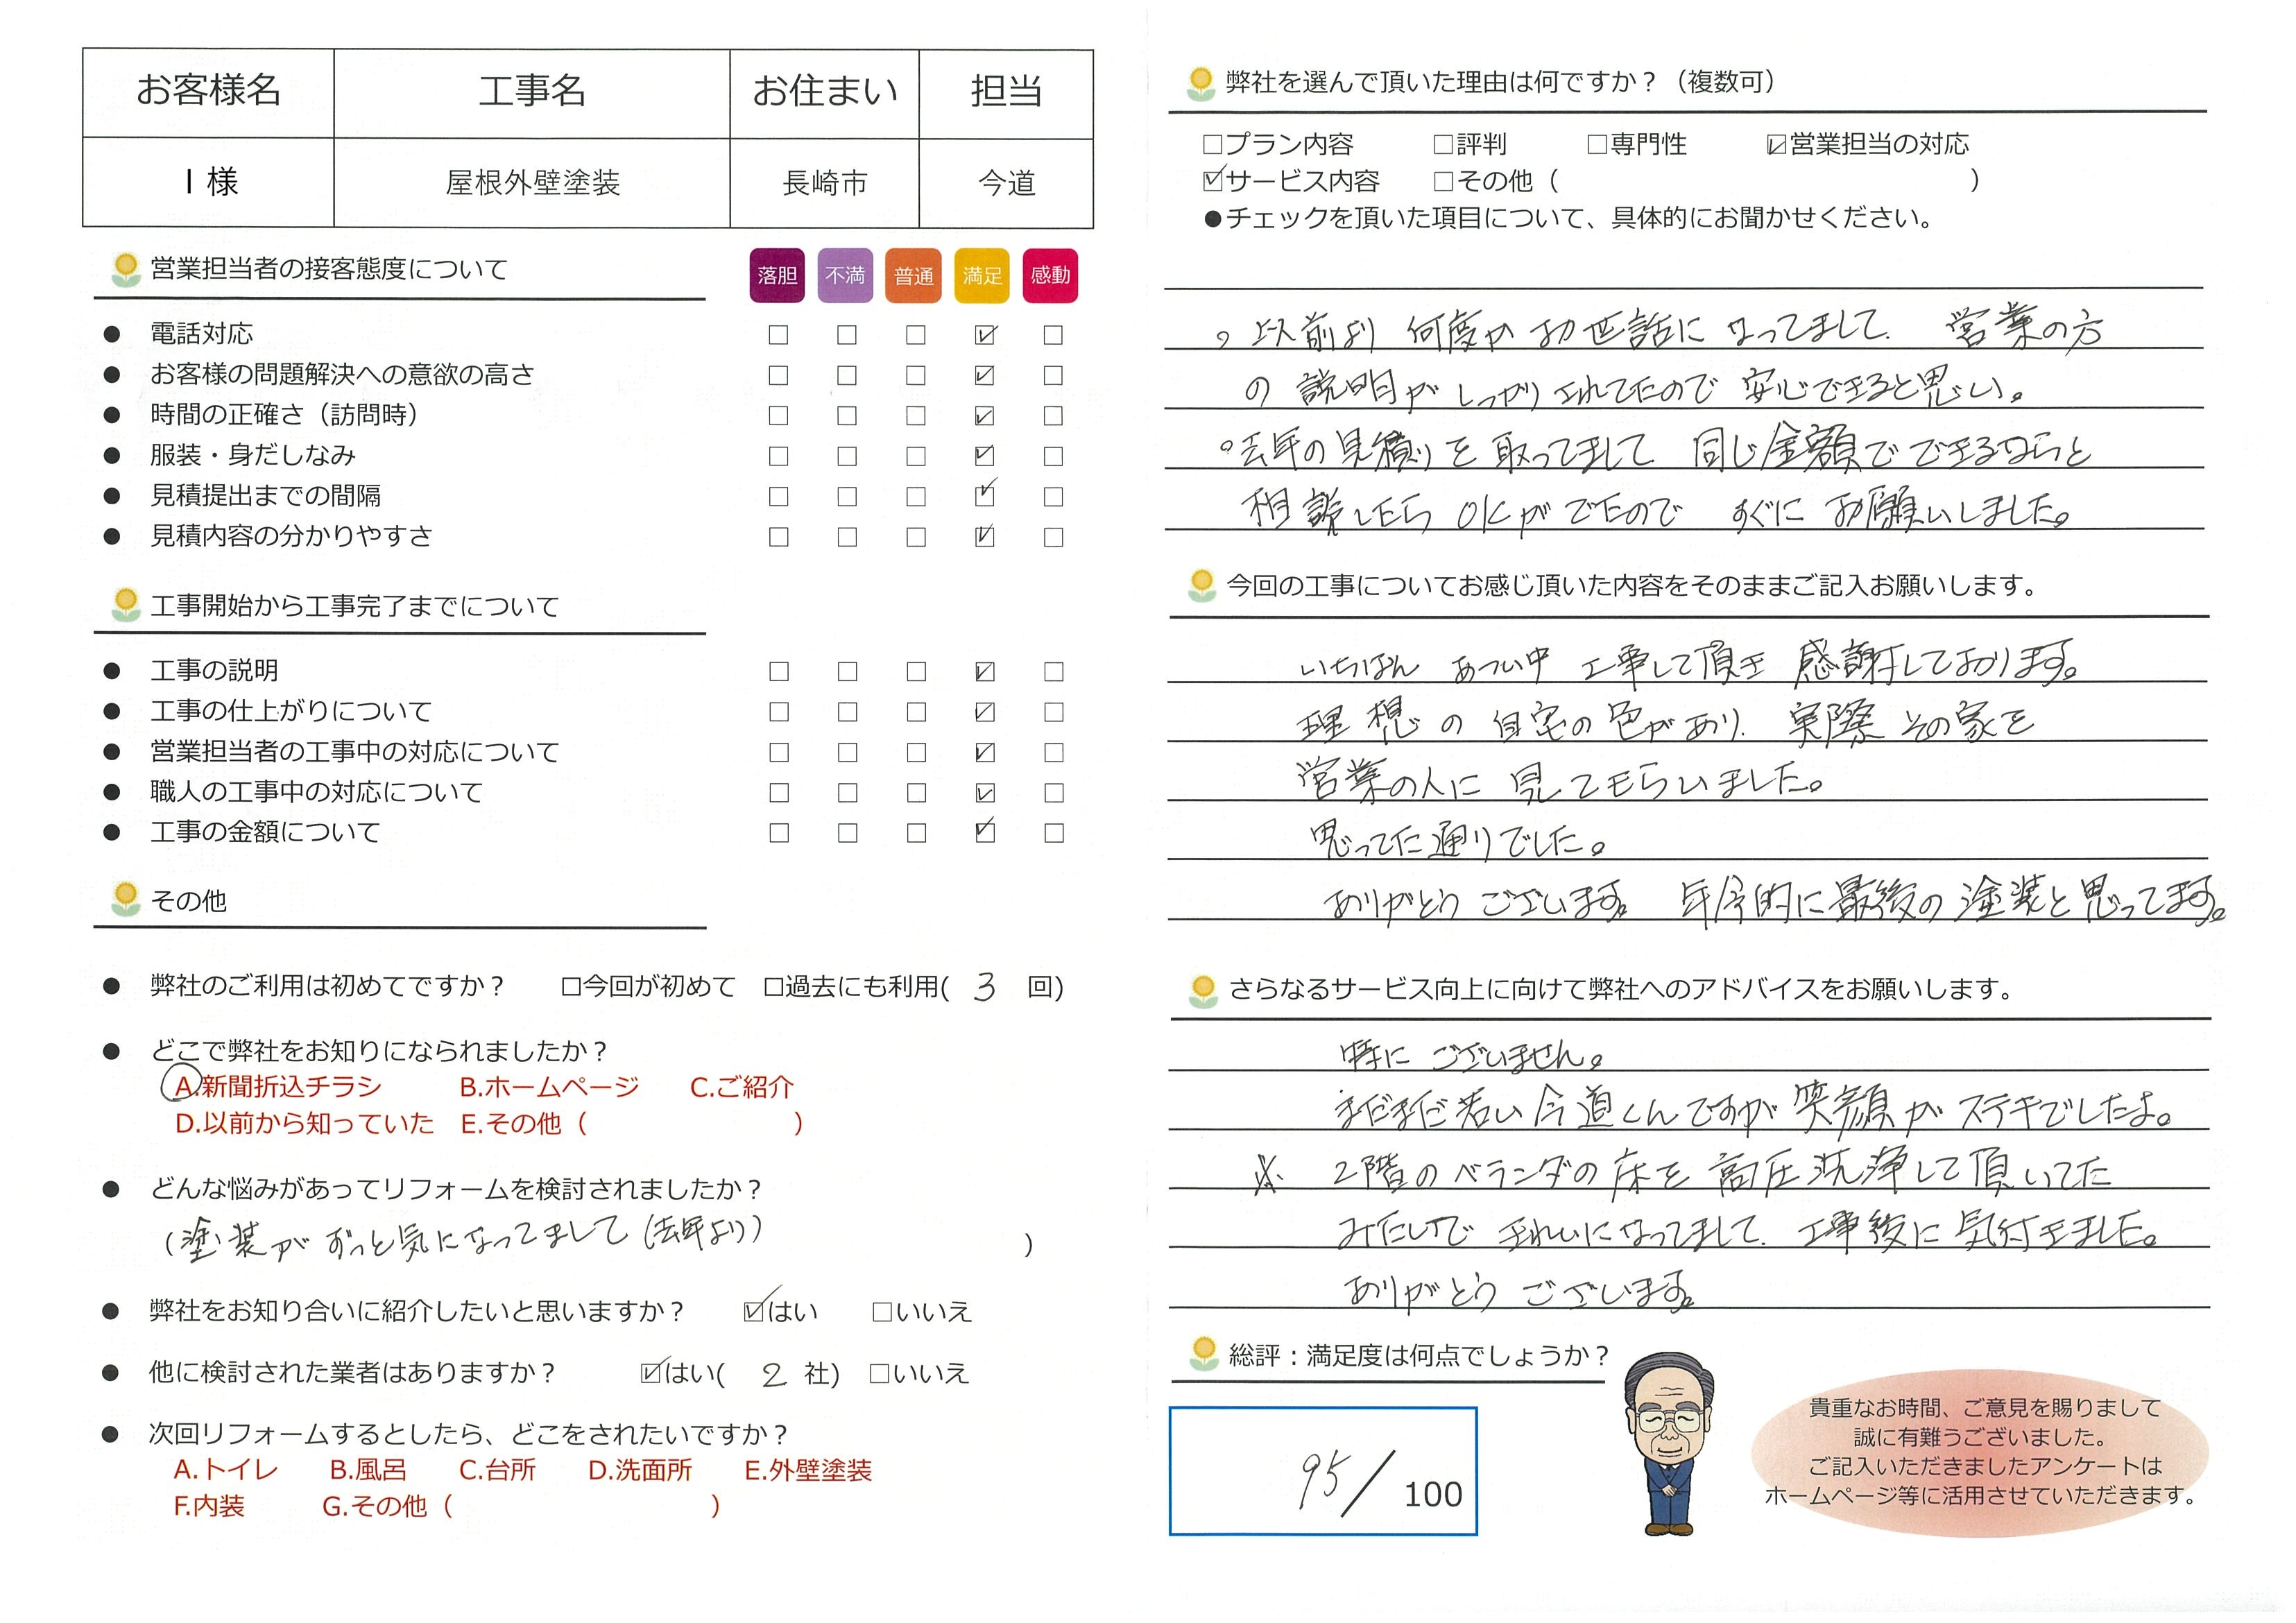 お客様名 工事名 お住まい 担当
I 様 屋根外壁塗装 長崎市 今道
営業担当者の接客態度について 落胆 不満 普通 満足 感動
● 電話対応 □ □ □ ☑ □
● お客様の問題解決への意欲の高さ □ □ □ ☑ □
● 時間の正確さ（訪問時） □ □ □ ☑ □
● 服装・身だしなみ □ □ □ ☑ □
● 見積提出までの間隔 □ □ □ ☑ □
● 見積内容の分かりやすさ □ □ □ ☑ □
工事開始から工事完了までについて
● 工事の説明 □ □ □ ☑ □
● 工事の仕上がりについて □ □ □ ☑ □
● 営業担当者の工事中の対応について □ □ □ ☑ □
● 職人の工事中の対応について □ □ □ ☑ □
● 工事の金額について □ □ □ ☑ □
その他
● 弊社のご利用は初めてですか？ □今回が初めて □過去にも利用( 3 回)
● どこで弊社をお知りになられましたか？
A.新聞折込チラシ B.ホームページ C.ご紹介
D.以前から知っていた E.その他（ ）
● どんな悩みがあってリフォームを検討されましたか？
（塗装がずっと気になってまして（去年より） ）
● 弊社をお知り合いに紹介したいと思いますか？ ☑はい □いいえ
● 他に検討された業者はありますか？ ☑はい( 2 社) □いいえ
● 次回リフォームするとしたら、どこをされたいですか？
A.トイレ B.風呂 C.台所 D.洗面所 E.外壁塗装
F.内装 G.その他（ ）
弊社を選んで頂いた理由は何ですか？（複数可）
□プラン内容 □評判 □専門性 ☑営業担当の対応
☑サービス内容 □その他（ ）
●チェックを頂いた項目について、具体的にお聞かせください。
。以前より 何度か お世話に なってまして、 営業の方
の 説明が しっかり されてたので 安心できると思い。
。去年の見積りを 取ってまして 同じ金額で できるならと
相談したら OKが でたので すぐに お願いしました。
今回の工事についてお感じ頂いた内容をそのままご記入お願いします。
いちばん あつい中 工事して頂き 感謝しております。
理想の 自宅の色があり、 実際 その家を
営業の人に 見てもらいました。
思ってた通りでした。
ありがとう ございます。 年令的に最後の塗装と思ってます。
さらなるサービス向上に向けて弊社へのアドバイスをお願いします。
特に ございません。
まだまだ若い今道くんですが 笑顔が ステキでしたよ。
※ 2階のベランダの床を 高圧洗浄して頂いてた
みたいで きれいになってまして、 工事後に 気付きました。
ありがとう ございます。
総評：満足度は何点でしょうか？
95/100
貴重なお時間、ご意見を賜りまして
誠に有難うございました。
ご記入いただきましたアンケートは
ホームページ等に活用させていただきます。